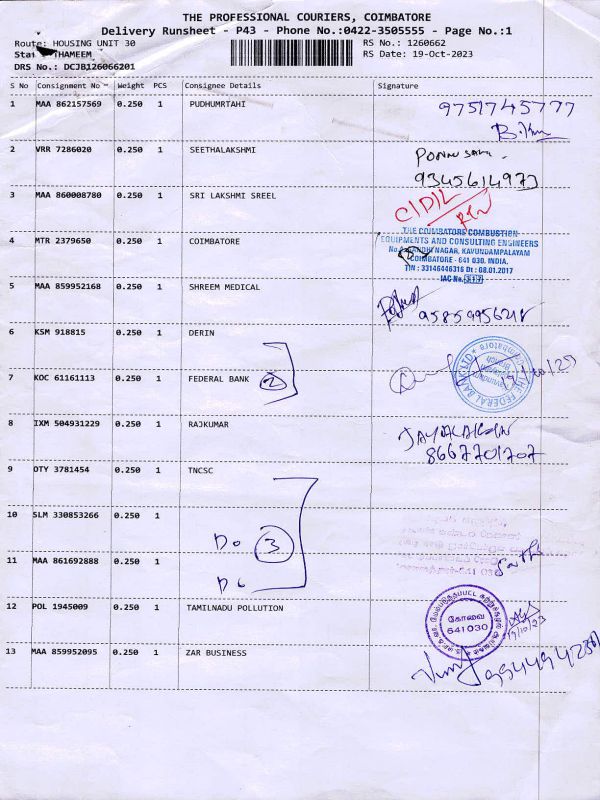 THE PROFESSIONAL COURIERS, COIMBATORE
Delivery Runsheet - P43 - Phone No.:0422-3505555 - Page No.:1
Route: HOUSING UNIT 30 RS No.: 1260662
THAMEEM RS Date: 19-Oct-2023
DRS No.: DCJB126066201
S No Consignment No Weight PCS Consignee Details Signature
1 MAA 862157569 0.250 1 PUDHUMRTAHI 9751745777
2 VRR 7286020 0.250 1 SEETHALAKSHMI
9345614973
3 MAA 860008780 0.250 1 SRI LAKSHMI SREEL
THE COIMBATORE COMBUSTION
4 MTR 2379650 0.250 1 COIMBATORE EQUIPMENTS AND CONSULTING ENGINEERS
NAGAR, KAVUNDAMPALAYAM
COIMBATORE - 641 030. INDIA.
TIN : 33146446316 Dt : 08.01.2017
IAC No.
5 MAA 859952168 0.250 1 SHREEM MEDICAL
6 KSM 918815 0.250 1 DERIN
7 KOC 61161113 0.250 1 FEDERAL BANK 2
THE FEDERAL BANK LTD Coimbatore
8 IXM 504931229 0.250 1 RAJKUMAR
8667701707
9 OTY 3781454 0.250 1 TNCSC
10 SLM 330853266 0.250 1
Do 3
11 MAA 861692888 0.250 1
12 POL 1945009 0.250 1 TAMILNADU POLLUTION
கோவை
641030
19/10/23
13 MAA 859952095 0.250 1 ZAR BUSINESS